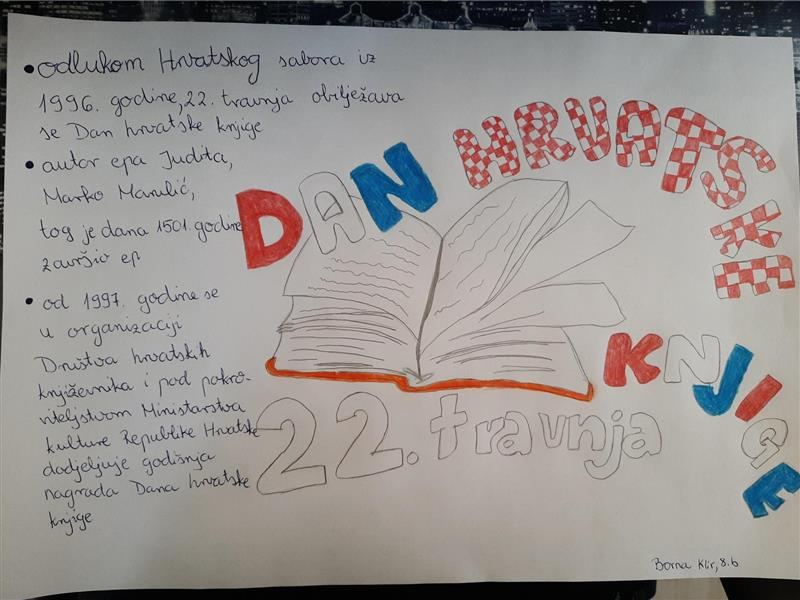 • odlukom Hrvatskog sabora iz
1996. godine, 22. travnja obilježava
se Dan hrvatske knjige
• autor epa Judita,
Marko Marulić,
tog je dana 1501. godine
završio ep
• od 1997. godine se
u organizaciji
Društva hrvatskih
književnika i pod pokro-
viteljstvom Ministarstva
kulture Republike Hrvatske
dodjeljuje godišnja
nagrada Dana hrvatske
knjige
DAN HRVATSKE
KNJIGE
22. travnja
Borna Klir, 8.b